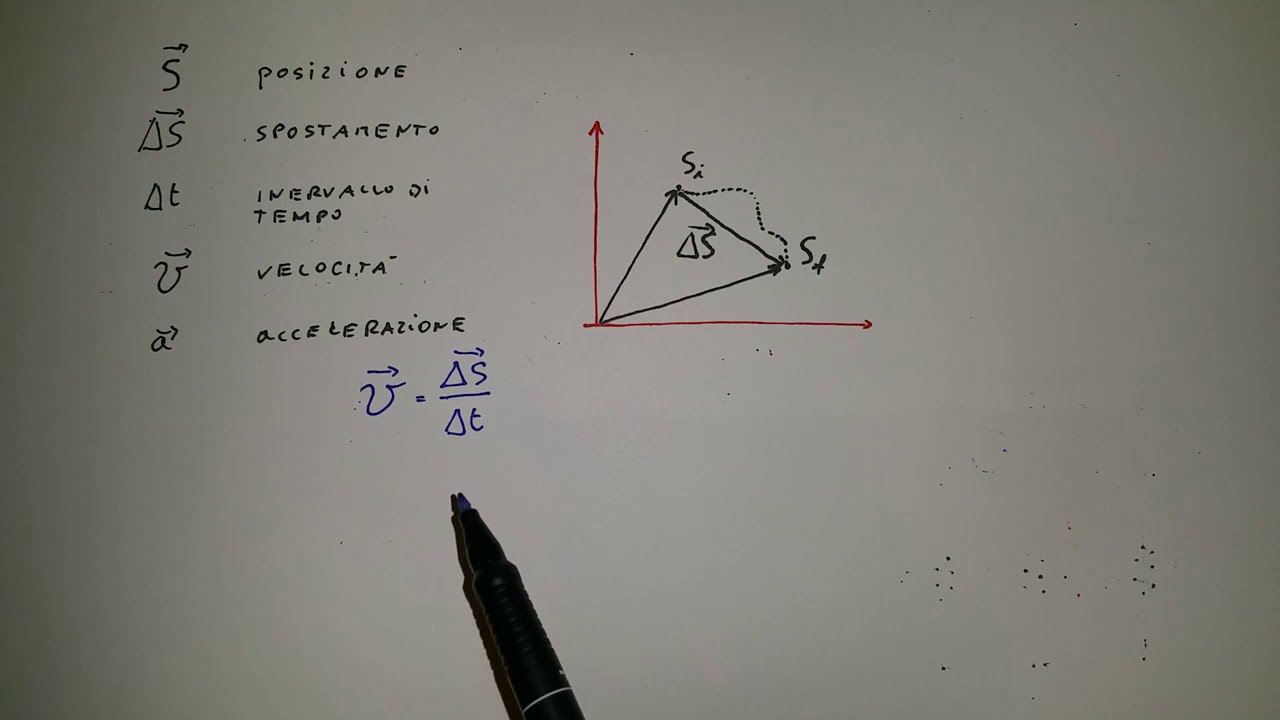 S⃗ posizione
ΔS⃗ SPOSTAMENTO
Δt INERVALLO DI
TEMPO
v⃗ VELOCITA'
a⃗ accelerazione
v⃗ = ΔS⃗ / Δt
Si
ΔS⃗
Sf